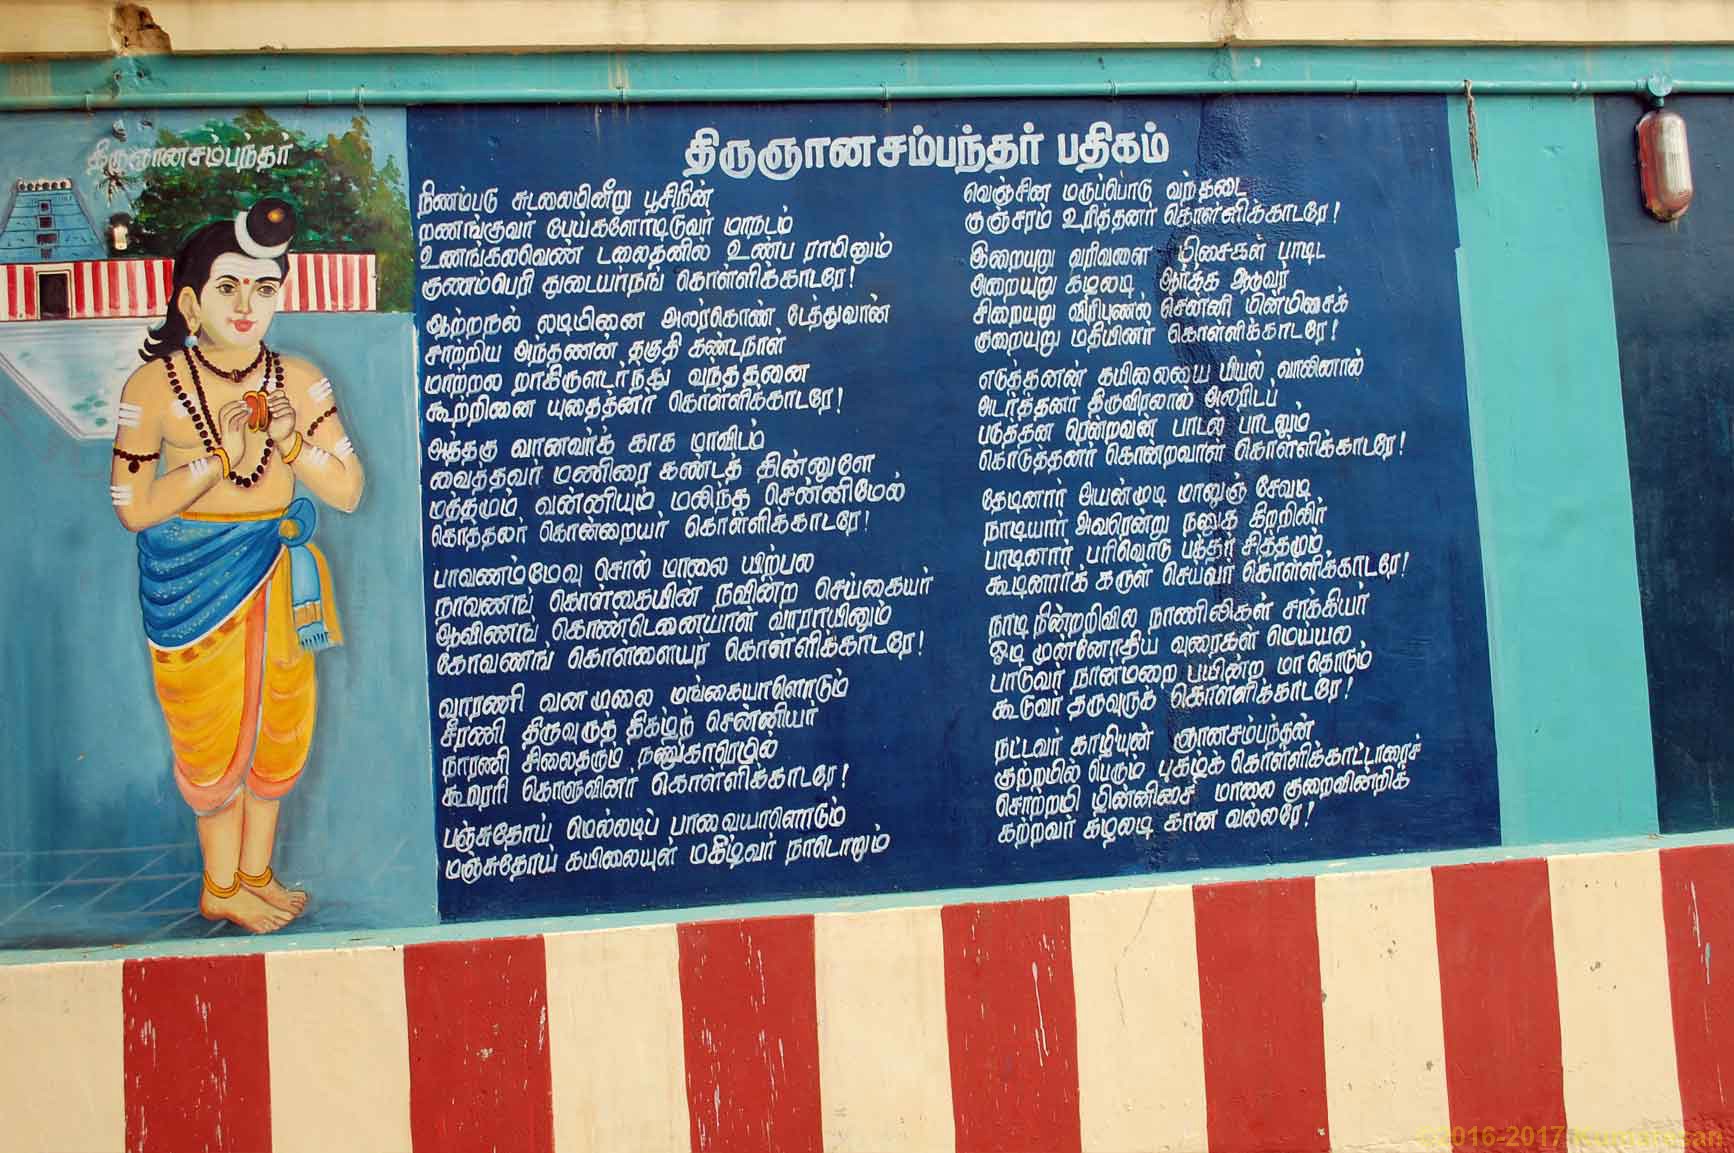 திருஞானசம்பந்தர்
திருஞானசம்பந்தர் பதிகம்
நிணம்படு சுடலையினீறு பூசிநின்
றணங்குவர் பேய்களோடிடுவர் மாநடம்
உணங்கலவெண் டலைதனில் உண்ப ராயினும்
குணம்பெரி துடையர்நங் கொள்ளிக்காடரே!
ஆற்றநல் லடியினை அலர்கொண் டேத்துவான்
சாற்றிய அந்தணன் தகுதி கண்டநாள்
மாற்றல றாகிருளடர்ந்து வந்ததனை
கூற்றினை யுதைத்னர் கொள்ளிக்காடரே!
அத்தகு வானவர்க் காக மாவிடம்
வைத்தவர் மணிரை கண்டத் தின்னுளே
மத்தமும் வன்னியும் மலிந்த சென்னிமேல்
கொத்தலர் கொன்றையர் கொள்ளிக்காடரே!
பாவணம்மேவு சொல் மாலை யிற்பல
நாவணங் கொள்கையின் நவின்ற செய்கையர்
ஆவிணங் கொண்டெனையாள் வாராயினும்
கோவணங் கொள்ளையர் கொள்ளிக்காடரே!
வாரணி வனமுலை மங்கையாளொடும்
சீரணி திருவுருத் திகழ்ந் சென்னியர்
நாரணி சிலைதரும் நணுகாரெயில்
கூரெரி கொளுவினர் கொள்ளிக்காடரே!
பஞ்சுதோய் மெல்லடிப் பாவையாளொடும்
மஞ்சுதோய் கயிலையுள் மகிழ்வர் நாடொறும்
வெஞ்சின மருப்பொடு வந்தடை
குஞ்சரம் உரித்தனர் கொள்ளிக்காடரே!
இறையுறு வரிவளை மிசைகள் பாடிட
அறையுறு கழலடி ஆர்க்க ஆடுவர்
சிறையுறு விரிபுனல் சென்னி மின்மிசைக்
குறையுறு மதியினர் கொள்ளிக்காடரே!
எடுத்தனன் கயிலையை யியல் வாலினால்
அடர்த்தனர் திருவிரலால் அலரிடப்
படுத்தன ரென்றவன் பாடல் பாடலும்
கொடுத்தனர் கொன்றவாள் கொள்ளிக்காடரே!
தேடினார் அயன்முடி மாலுஞ் சேவடி
நாடியார் அவரென்று நணுக கிற்றிலர்
பாடினார் பரிவொடு பத்தர் சித்தமும்
கூடினார்க் கருள் செய்வர் கொள்ளிக்காடரே!
நாடி நின்றறிவில நாணிலிகள் சாக்கியர்
ஓடி முன்னோதிய வுரைகள் மெய்யல
பாடுவர் நான்மறை பயின்ற மாதொடும்
கூடுவர் தருவுருக் கொள்ளிக்காடரே!
நட்டவர் காழியுள் ஞானசம்பந்தன்
குற்றமில் பெரும் புகழ்க் கொள்ளிக்காட்டாரைச்
சொற்றமி ழின்னிசை மாலை குறைவின்றிக்
கற்றவர் கழலடி காண வல்லரே!
©2016-2017